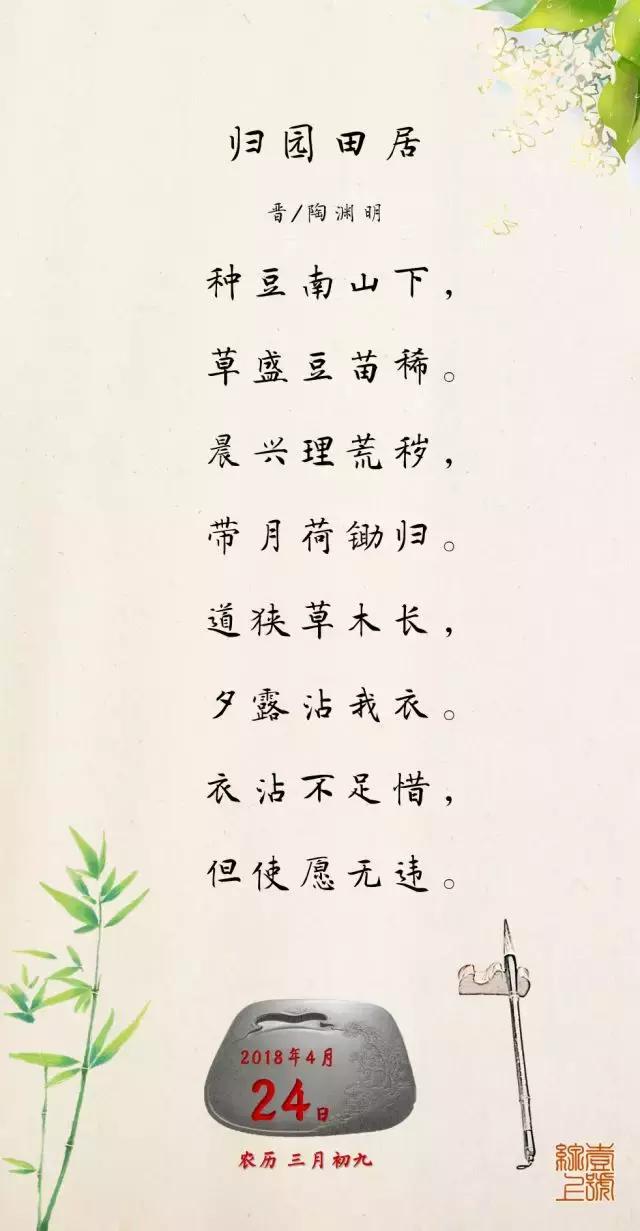 归园田居
晋/陶渊明
种豆南山下，
草盛豆苗稀。
晨兴理荒秽，
带月荷锄归。
道狭草木长，
夕露沾我衣。
衣沾不足惜，
但使愿无违。
2018年4月
24日
农历 三月初九
壹號
綜上